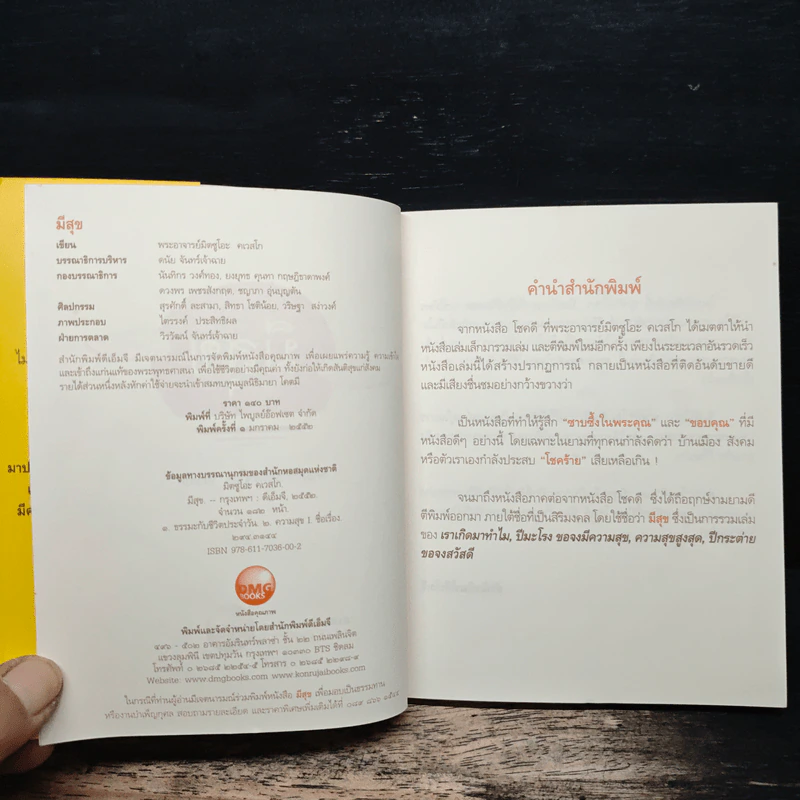 มีสุข
เขียน พระอาจารย์มิตซูโอะ คเวสโก
บรรณาธิการบริหาร ดนัย จันทร์เจ้าฉาย
กองบรรณาธิการ นันทิกร วงค์ทอง, ยงยุทธ คุนทา กฤษฎิธาดาพงศ์
ดวงพร เพชรสังกฤต, ชญาภา อุ่นบุญตัน
ศิลปกรรม สุรศักดิ์ ละสามา, สิทธา โชติน้อย, วริษฐา สง่าวงค์
ภาพประกอบ ไตรรงค์ ประสิทธิผล
ฝ่ายการตลาด วิรวัฒน์ จันทร์เจ้าฉาย
สำนักพิมพ์ดีเอ็มจี มีเจตนารมณ์ในการจัดพิมพ์หนังสือคุณภาพ เพื่อเผยแพร่ความรู้ ความเข้าใจ
และเข้าถึงแก่นแท้ของพระพุทธศาสนา เพื่อใช้ชีวิตอย่างมีคุณค่า ทั้งยังก่อให้เกิดสันติสุขแก่สังคม
รายได้ส่วนหนึ่งหลังหักค่าใช้จ่ายจะนำเข้าสมทบทุนมูลนิธิมายา โคตมี
ราคา ๑๔๐ บาท
พิมพ์ที่ บริษัท ไพบูลย์อ๊อฟเซต จำกัด
พิมพ์ครั้งที่ ๑ มกราคม ๒๕๕๒
ข้อมูลทางบรรณานุกรมของสำนักหอสมุดแห่งชาติ
มิตซูโอะ คเวสโก.
มีสุข. -- กรุงเทพฯ : ดีเอ็มจี, ๒๕๕๒.
จำนวน ๑๘๒ หน้า.
๑. ธรรมะกับชีวิตประจำวัน. ๒. ความสุข I. ชื่อเรื่อง.
๒๙๔.๓๑๔๔
ISBN 978-611-7036-00-2
DMG
BOOKS
หนังสือคุณภาพ
พิมพ์และจัดจำหน่ายโดยสำนักพิมพ์ดีเอ็มจี
๔๙๖ - ๕๐๒ อาคารอัมรินทร์พลาซ่า ชั้น ๒๒ ถนนเพลินจิต
แขวงลุมพินี เขตปทุมวัน กรุงเทพฯ ๑๐๓๓๐ BTS ชิดลม
โทรศัพท์ ๐ ๒๖๘๕ ๒๒๕๔-๕ โทรสาร ๐ ๒๖๘๕ ๒๒๑๘-๙
Website: www.dmgbooks.com & www.konrujaibooks.com
ในกรณีที่ท่านผู้อ่านมีเจตนารมณ์ร่วมพิมพ์หนังสือ มีสุข เพื่อมอบเป็นธรรมทาน
หรืองานบำเพ็ญกุศล สอบถามรายละเอียด และราคาพิเศษเพิ่มเติมได้ที่ ๐๘๙ ๘๖๖ ๑๕๔๔
คำนำสำนักพิมพ์
จากหนังสือ โชคดี ที่พระอาจารย์มิตซูโอะ คเวสโก ได้เมตตาให้นำ
หนังสือเล่มเล็กมารวมเล่ม และตีพิมพ์ใหม่อีกครั้ง เพียงในระยะเวลาอันรวดเร็ว
หนังสือเล่มนี้ได้สร้างปรากฏการณ์ กลายเป็นหนังสือที่ติดอันดับขายดี
และมีเสียงชื่นชมอย่างกว้างขวางว่า
เป็นหนังสือที่ทำให้รู้สึก "ซาบซึ้งในพระคุณ" และ "ขอบคุณ" ที่มี
หนังสือดีๆ อย่างนี้ โดยเฉพาะในยามที่ทุกคนกำลังคิดว่า บ้านเมือง สังคม
หรือตัวเราเองกำลังประสบ "โชคร้าย" เสียเหลือเกิน !
จนมาถึงหนังสือภาคต่อจากหนังสือ โชคดี ซึ่งได้ถือฤกษ์งามยามดี
ตีพิมพ์ออกมา ภายใต้ชื่อที่เป็นสิริมงคล โดยใช้ชื่อว่า มีสุข ซึ่งเป็นการรวมเล่ม
ของ เราเกิดมาทำไม, ปีมะโรง ขอจงมีความสุข, ความสุขสูงสุด, ปีกระต่าย
ขอจงสวัสดี